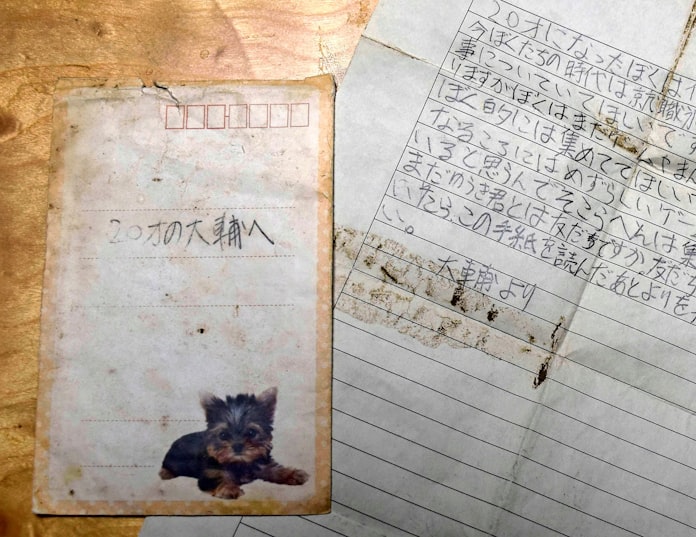 20才の大輔へ
20才になったぼくは
今ぼくたちの時代は就職
事についていてほしいです
りますかぼくはまだ
ぼく自身には集めてほしい
なるころにはめずらしいゲー
いると思うんでそこらへんは集
まだゆうき君とは友だちですか、友だち
いたら、この手紙を読んだあとよりを
い。
大輔より